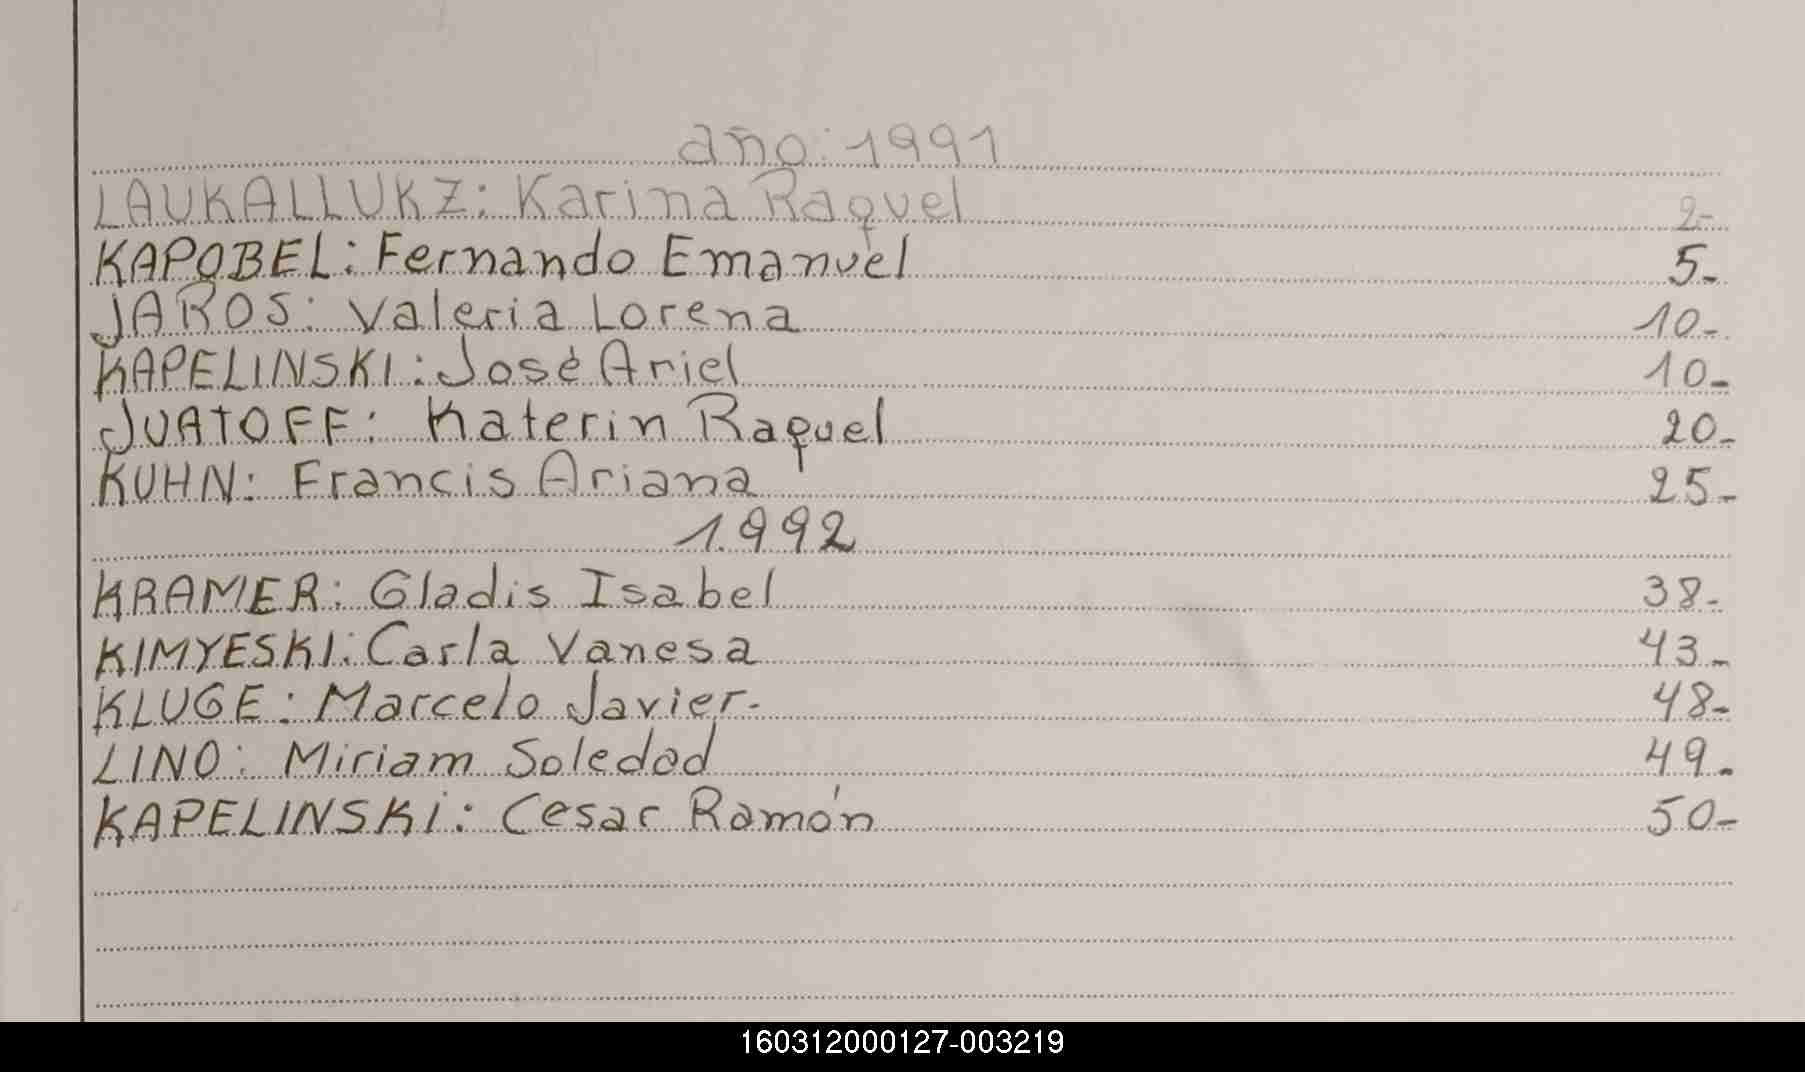 año: 1991
LAUKALLUKZ: Karina Raquel 2-
KAPOBEL: Fernando Emanuel 5-
JAROS: Valeria Lorena 10-
KAPELINSKI: José Ariel 10-
JUATOFF: Katerin Raquel 20-
KUHN: Francis Ariana 25-
1.992
KRAMER: Gladis Isabel 38-
KIMYESKI: Carla Vanesa 43-
KLUGE: Marcelo Javier- 48-
LINO: Miriam Soledad 49-
KAPELINSKi: Cesar Ramón 50-
160312000127-003219